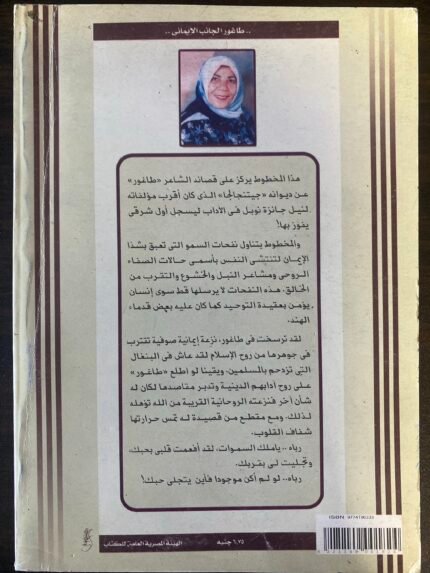 .. طاغور الجانب الإيمانى ..
هذا المخطوط يركز على قصائد الشاعر «طاغور»
عن ديوانه «جيتنجالجا» الذى كان أقرب مؤلفاته
لنيل جائزة نوبل فى الآداب ليسجل أول شرقى
يفوز بها!
والمخطوط يتناول نفحات السمو التى تعبق بشذا
الإيمان لتنتشى النفس بأسمى حالات الصفاء
الروحى ومشاعر النبل والخشوع والتقرب من
الخالق. هذه النفحات لا يرسلها قط سوى إنسان
يؤمن بعقيدة التوحيد كما كان عليه بعض قدماء
الهند.
لقد ترسخت فى طاغور، نزعة إيمانية صوفية تقترب
فى جوهرها من روح الإسلام لقد عاش فى البنغال
التى تزدحم بالمسلمين. ويقينا لو اطلع «طاغور»
على روح آدابهم الدينية وتدبر مقاصدها لكان له
شأن آخر فنزعته الروحانية القريبة من الله تؤهله
لذلك. ومع مقطع من قصيدة له تمس حرارتها
شغاف القلوب.
رباه .. ياملك السموات، لقد أفعمت قلبى بحبك،
وتجليت لى بقربك.
رباه.. لو لم أكن موجودا فأين يتجلى حبك!
ISBN
٦,٢٥ جنيه
الهيئة المصرية العامة للكتاب